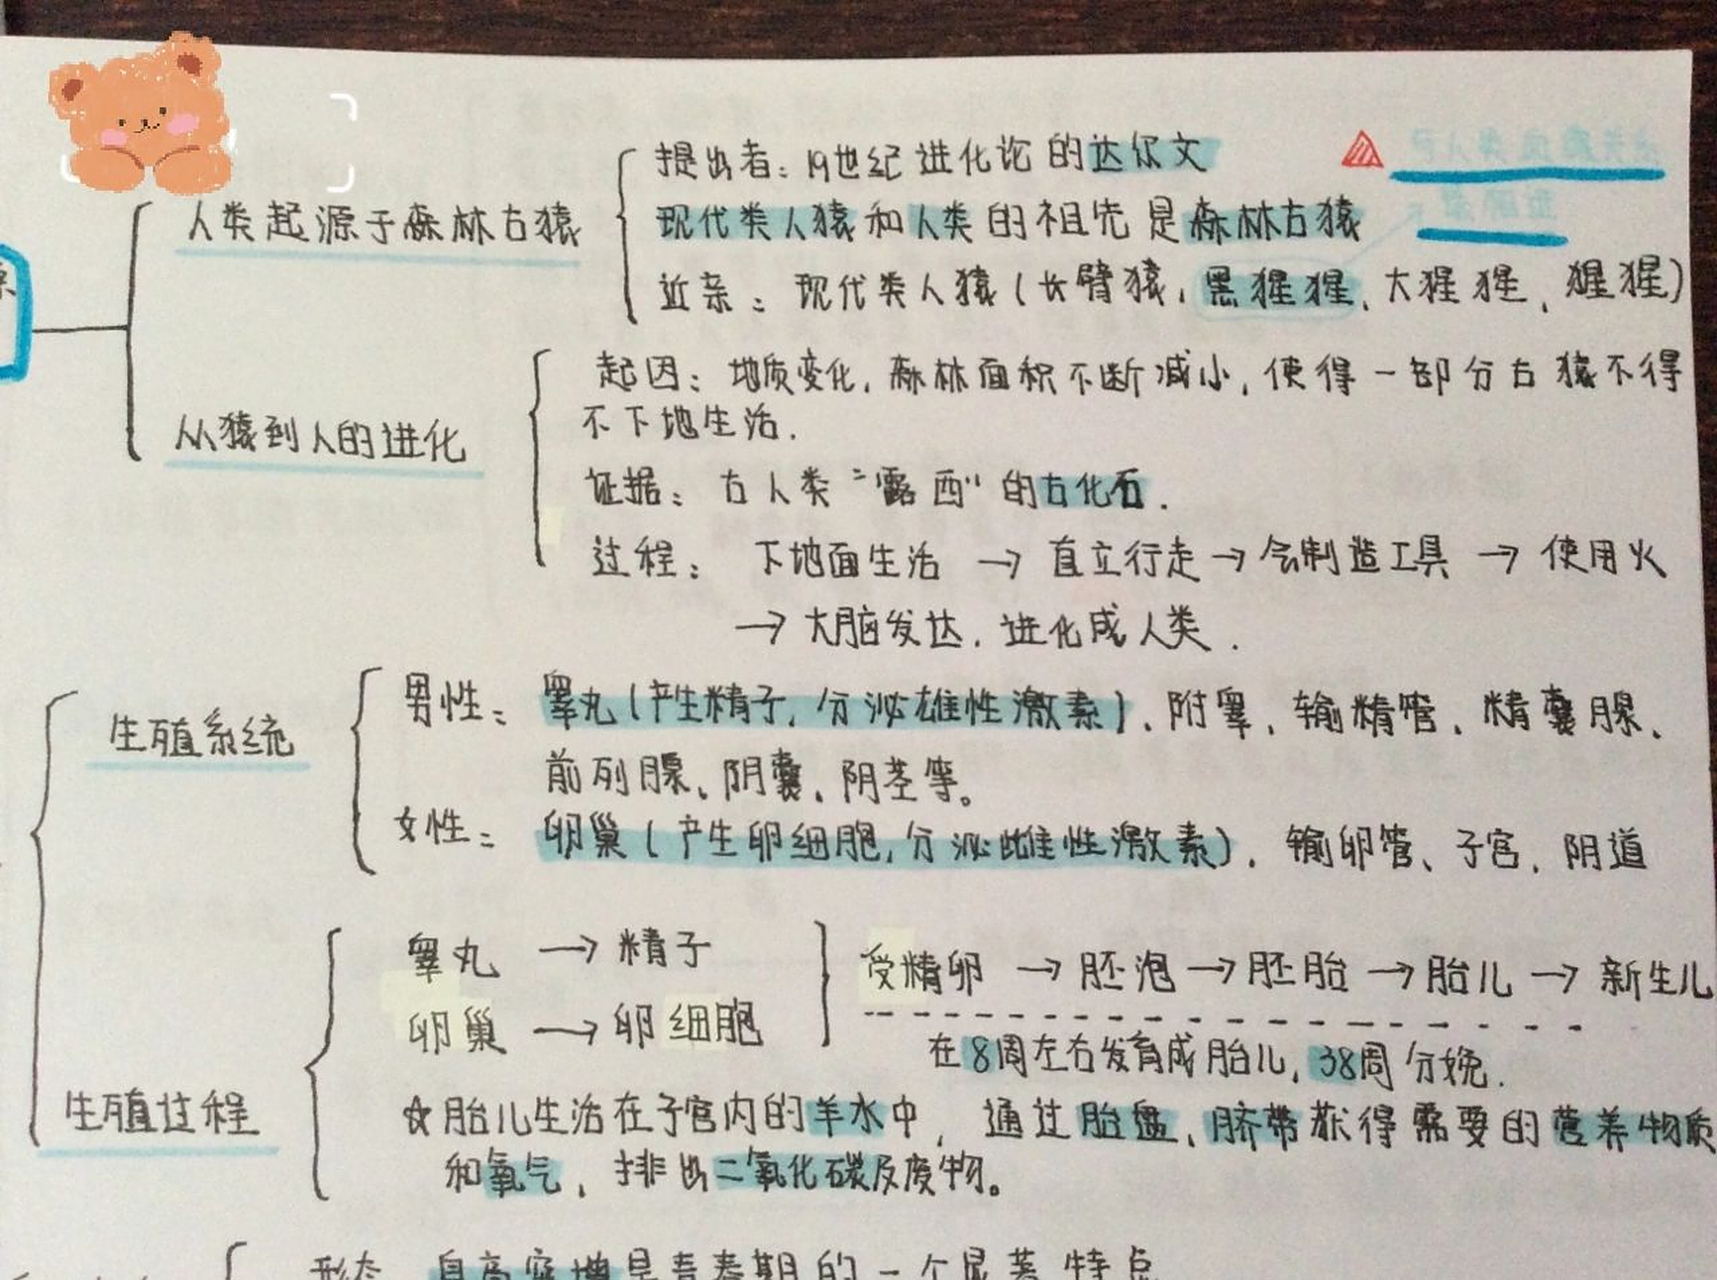 人类起源于森林古猿
提出者：19世纪进化论的达尔文
与人类的亲缘关系
现代类人猿和人类的祖先是森林古猿
最接近
近亲：现代类人猿（长臂猿，黑猩猩、大猩猩、猩猩）
从猿到人的进化
起因：地质变化，森林面积不断减小，使得一部分古猿不得
不下地生活.
证据：古人类“露西”的古化石.
过程：下地面生活 → 直立行走 → 会制造工具 → 使用火
→ 大脑发达，进化成人类.
生殖系统
男性：睾丸（产生精子，分泌雄性激素）、附睾、输精管、精囊腺、
前列腺、阴囊、阴茎等。
女性：卵巢（产生卵细胞，分泌雌性激素）、输卵管、子宫、阴道
生殖过程
睾丸 → 精子
卵巢 → 卵细胞
受精卵 → 胚泡 → 胚胎 → 胎儿 → 新生儿
在8周左右发育成胎儿，38周分娩.
☆胎儿生活在子宫内的羊水中，通过胎盘、脐带获得需要的营养物质
和氧气，排出二氧化碳及废物。
形态 身高突增是青春期的一个显著特点